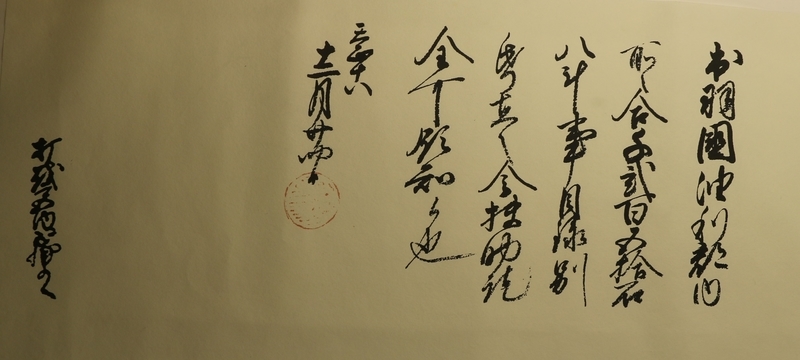 出羽國油利郡内
所々合千弐百五拾石
八斗事目録別
帋在之令扶助訖
全可領知候也
天正十八
十二月廿四日
打越とのへ